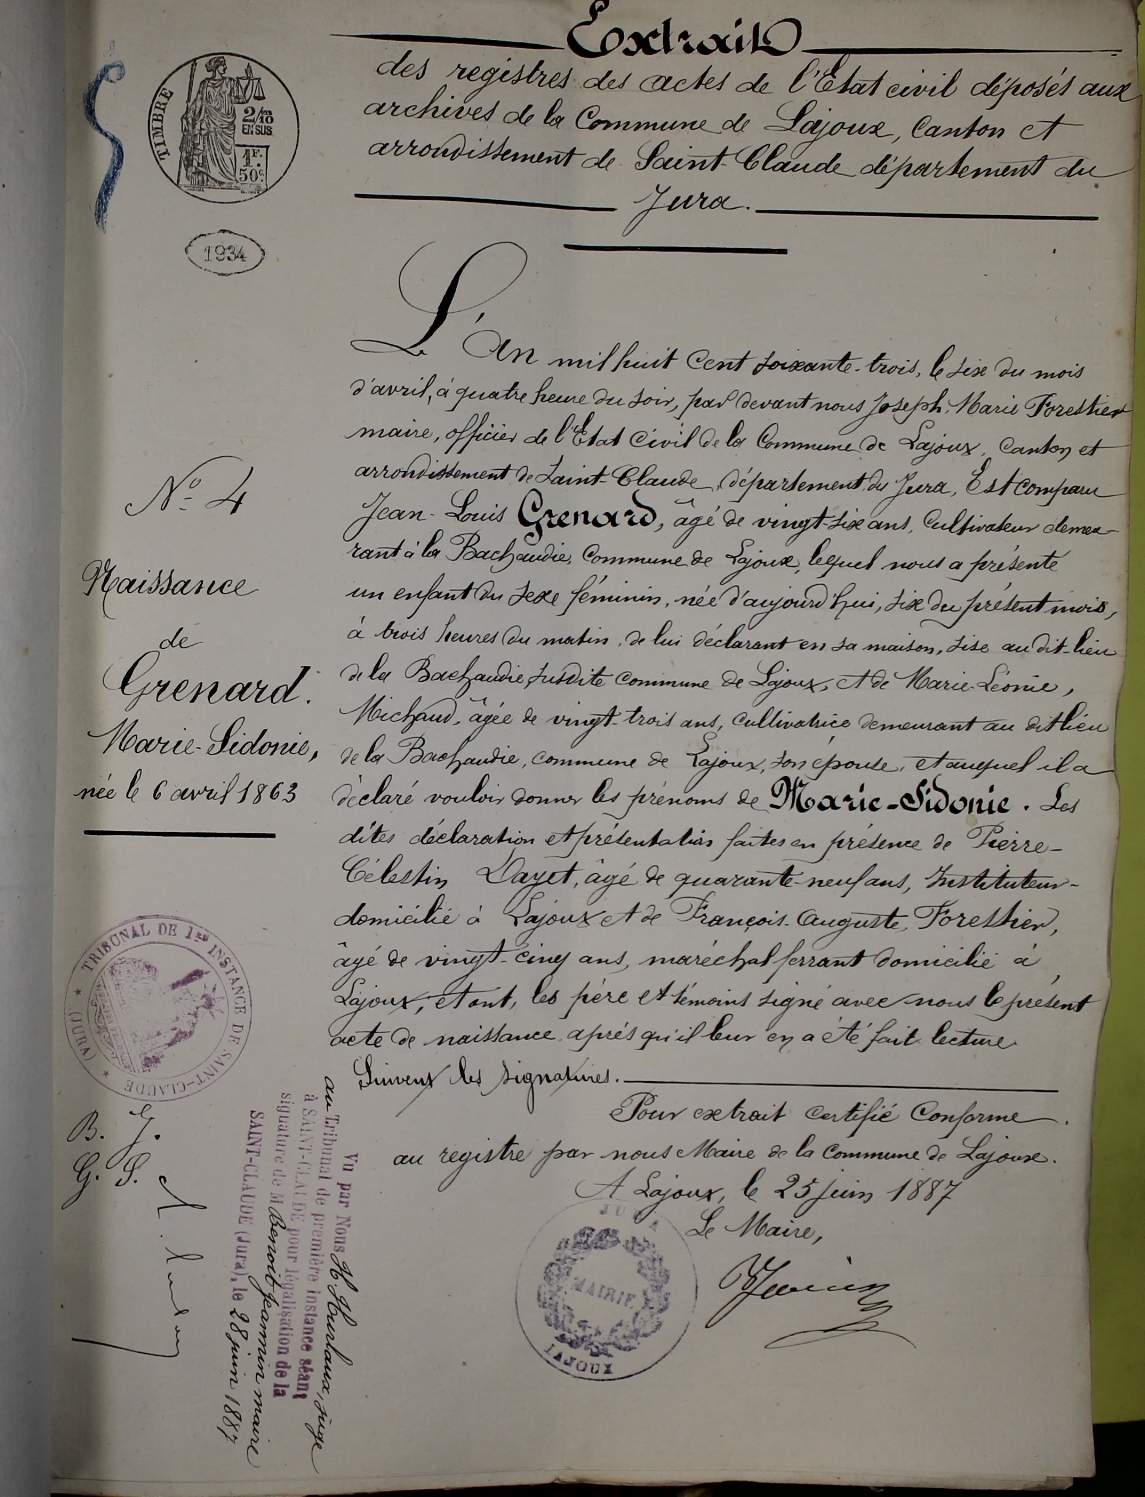 Extrait
des registres des actes de l'État civil déposés aux
archives de la Commune de Lajoux, Canton et
arrondissement de Saint-Claude département du
Jura.
TIMBRE
2/10
EN SUS
1F.
50c.
1934
L'An mil huit cent soixante-trois, le six du mois
d'avril, à quatre heure du soir, par devant nous Joseph-Marie Forestier
maire, officier de l'État civil de la Commune de Lajoux, Canton et
arrondissement de Saint-Claude, département du Jura, Est comparu
Jean-Louis Grenard, âgé de vingt-six ans, cultivateur demeu-
rant à la Bachaudie, commune de Lajoux, lequel nous a présenté
un enfant du sexe féminin, née d'aujourd'hui, six du présent mois,
à trois heures du matin, de lui déclarant en sa maison, sise au dit-lieu
de la Bachaudie, susdite commune de Lajoux, et de Marie-Léonie,
Michaud, âgée de vingt-trois ans, cultivatrice demeurant au dit lieu
de la Bachaudie, commune de Lajoux, son épouse, et auquel il a
déclaré vouloir donner les prénoms de Marie-Sidonie. Les
dites déclaration et présentation faites en présence de Pierre-
Célestin Dayet, âgé de quarante-neuf ans, Instituteur-
domicilié à Lajoux et de François-Auguste Forestier,
âgé de vingt-cinq ans, maréchal ferrant domicilié à
Lajoux; et ont, les père et témoins signé avec nous le présent
acte de naissance après qu'il leur en a été fait lecture
Suivent les signatures.
Pour extrait certifié conforme
au registre par nous Maire de la commune de Lajoux.
A Lajoux, le 25 juin 1887
Le Maire,
JURA
MAIRIE
LAJOUX
N° 4
Naissance
de
Grenard.
Marie-Sidonie,
née le 6 avril 1863
TRIBUNAL DE 1re INSTANCE DE SAINT-CLAUDE (JURA)
B. J.
G. S.
Vu par Nous H Hurlaux, juge
au Tribunal de première instance séant
à SAINT-CLAUDE pour légalisation de la
signature de M Benoit Jeannin maire
SAINT-CLAUDE (Jura), le 28 juin 1887